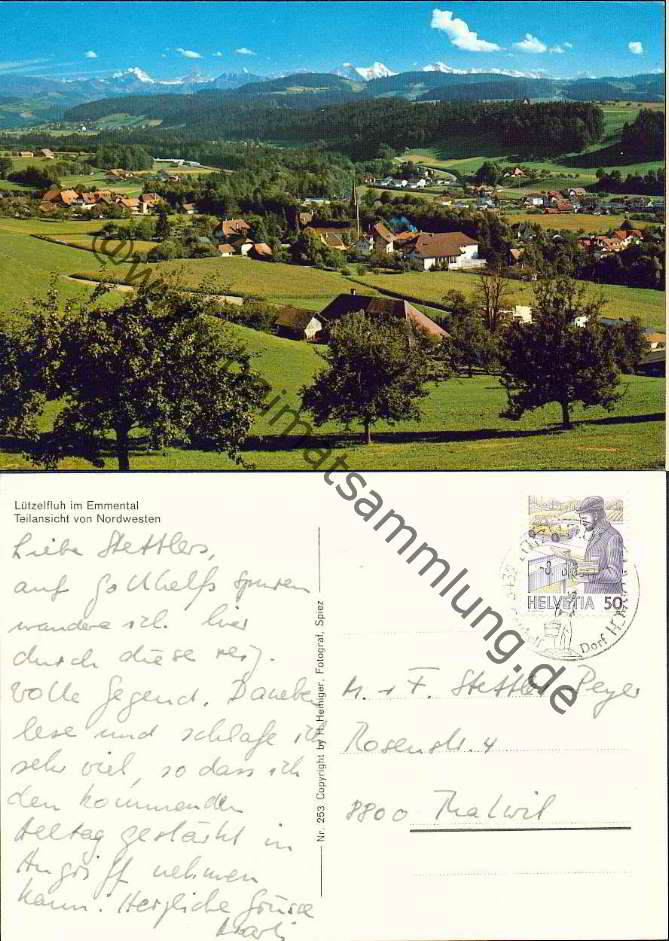 Lützelfluh im Emmental
Teilansicht von Nordwesten
Liebe Stettlers,
auf Gotthelfs Spuren
wandere ich hier
durch diese reiz-
volle Gegend. Daneben
lese und schlafe ich
sehr viel, so dass ich
den kommenden
Alltag gestärkt in
Angriff nehmen
kann. Herzliche Grüsse
Nr. 253 Copyright by H. Heiniger, Fotograf, Spiez
HELVETIA 50
Dorf
M. + F. Stettler-Peyer
Rosenstr. 4
8800 Thalwil
heimatsammlung.de